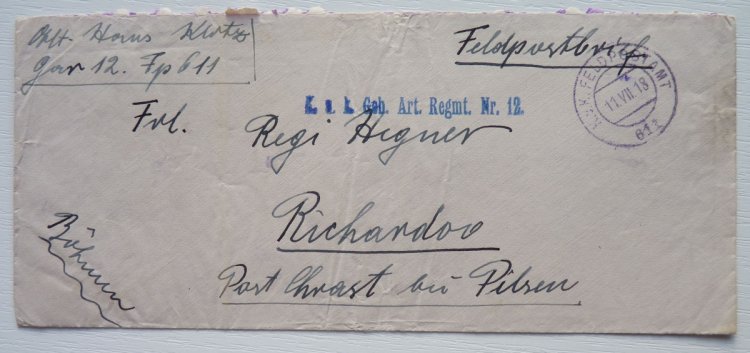 Oblt Hans Klotz
Gar 12. Fp 611
Feldpostbrief
K.u.K. FELDPOSTAMT
11.VII.18
611
K. u. k. Geb. Art. Regmt. Nr. 12.
Frl. Regi Hegner
Richardov
Post Chrast bei Pilsen
Böhmen